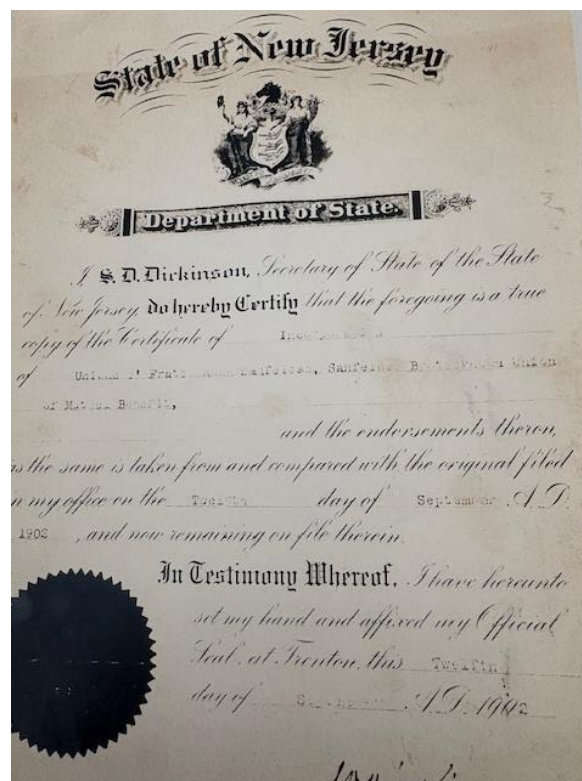 State of New Jersey
Department of State.
I S. D. Dickinson, Secretary of State of the State
of New Jersey, do hereby Certify that the foregoing is a true
copy of the Certificate of Incorporation
of Sanfelese, Brotherhood Union
of Mutual Benefit,
and the endorsements thereon,
as the same is taken from and compared with the original filed
in my office on the Twelfth day of September A. D.
1902 , and now remaining on file therein.
In Testimony Whereof, I have hereunto
set my hand and affixed my Official
Seal at Trenton, this Twelfth
day of September A. D. 1902